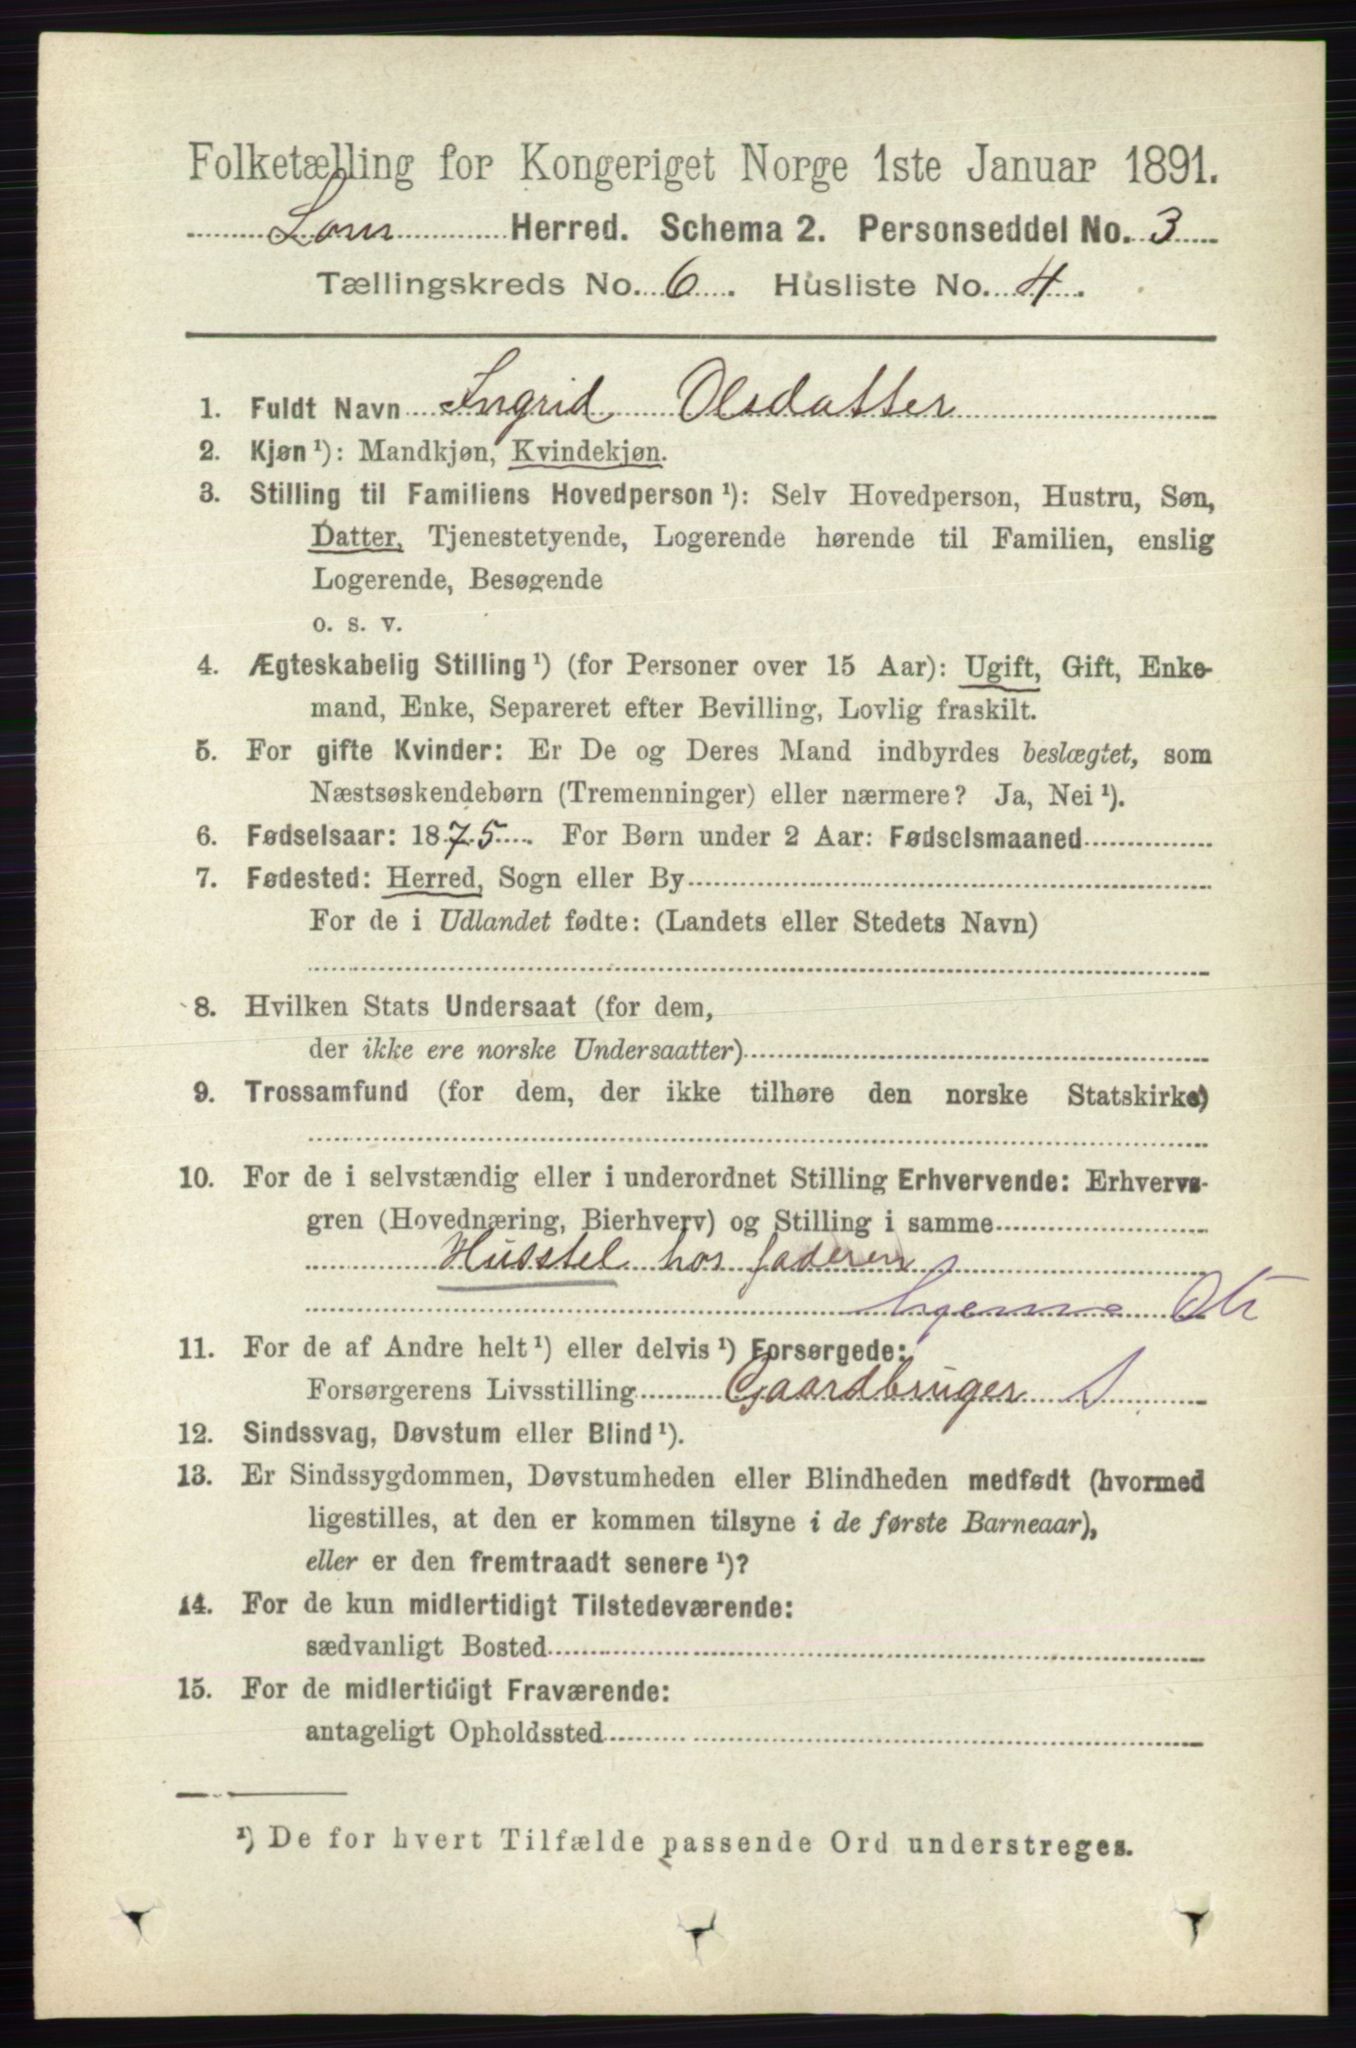 Folketælling for Kongeriget Norge 1ste Januar 1891.
Lom Herred. Schema 2. Personseddel No. 3
Tællingskreds No. 6. Husliste No. 4.
1. Fuldt Navn Ingrid Olsdatter
2. Kjøn ¹): Mandkjøn, Kvindekjøn.
3. Stilling til Familiens Hovedperson ¹): Selv Hovedperson, Hustru, Søn,
Datter, Tjenestetyende, Logerende hørende til Familien, enslig
Logerende, Besøgende
o. s. v.
4. Ægteskabelig Stilling ¹) (for Personer over 15 Aar): Ugift, Gift, Enke-
mand, Enke, Separeret efter Bevilling, Lovlig fraskilt.
5. For gifte Kvinder: Er De og Deres Mand indbyrdes beslægtet, som
Næstsøskendebørn (Tremenninger) eller nærmere? Ja, Nei ¹).
6. Fødselsaar: 1875. For Børn under 2 Aar: Fødselsmaaned
7. Fødested: Herred, Sogn eller By
For de i Udlandet fødte: (Landets eller Stedets Navn)
8. Hvilken Stats Undersaat (for dem,
der ikke ere norske Undersaatter)
9. Trossamfund (for dem, der ikke tilhøre den norske Statskirke)
10. For de i selvstændig eller i underordnet Stilling Erhvervende: Erhvervs-
gren (Hovednæring, Bierhverv) og Stilling i samme
Husstel hos faderen
11. For de af Andre helt ¹) eller delvis ¹) Forsørgede:
Forsørgerens Livsstilling Gaardbruger S
12. Sindssvag, Døvstum eller Blind ¹).
13. Er Sindssygdommen, Døvstumheden eller Blindheden medfødt (hvormed
ligestilles, at den er kommen tilsyne i de første Barneaar),
eller er den fremtraadt senere ¹)?
14. For de kun midlertidigt Tilstedeværende:
sædvanligt Bosted
15. For de midlertidigt Fraværende:
antageligt Opholdssted
¹) De for hvert Tilfælde passende Ord understreges.